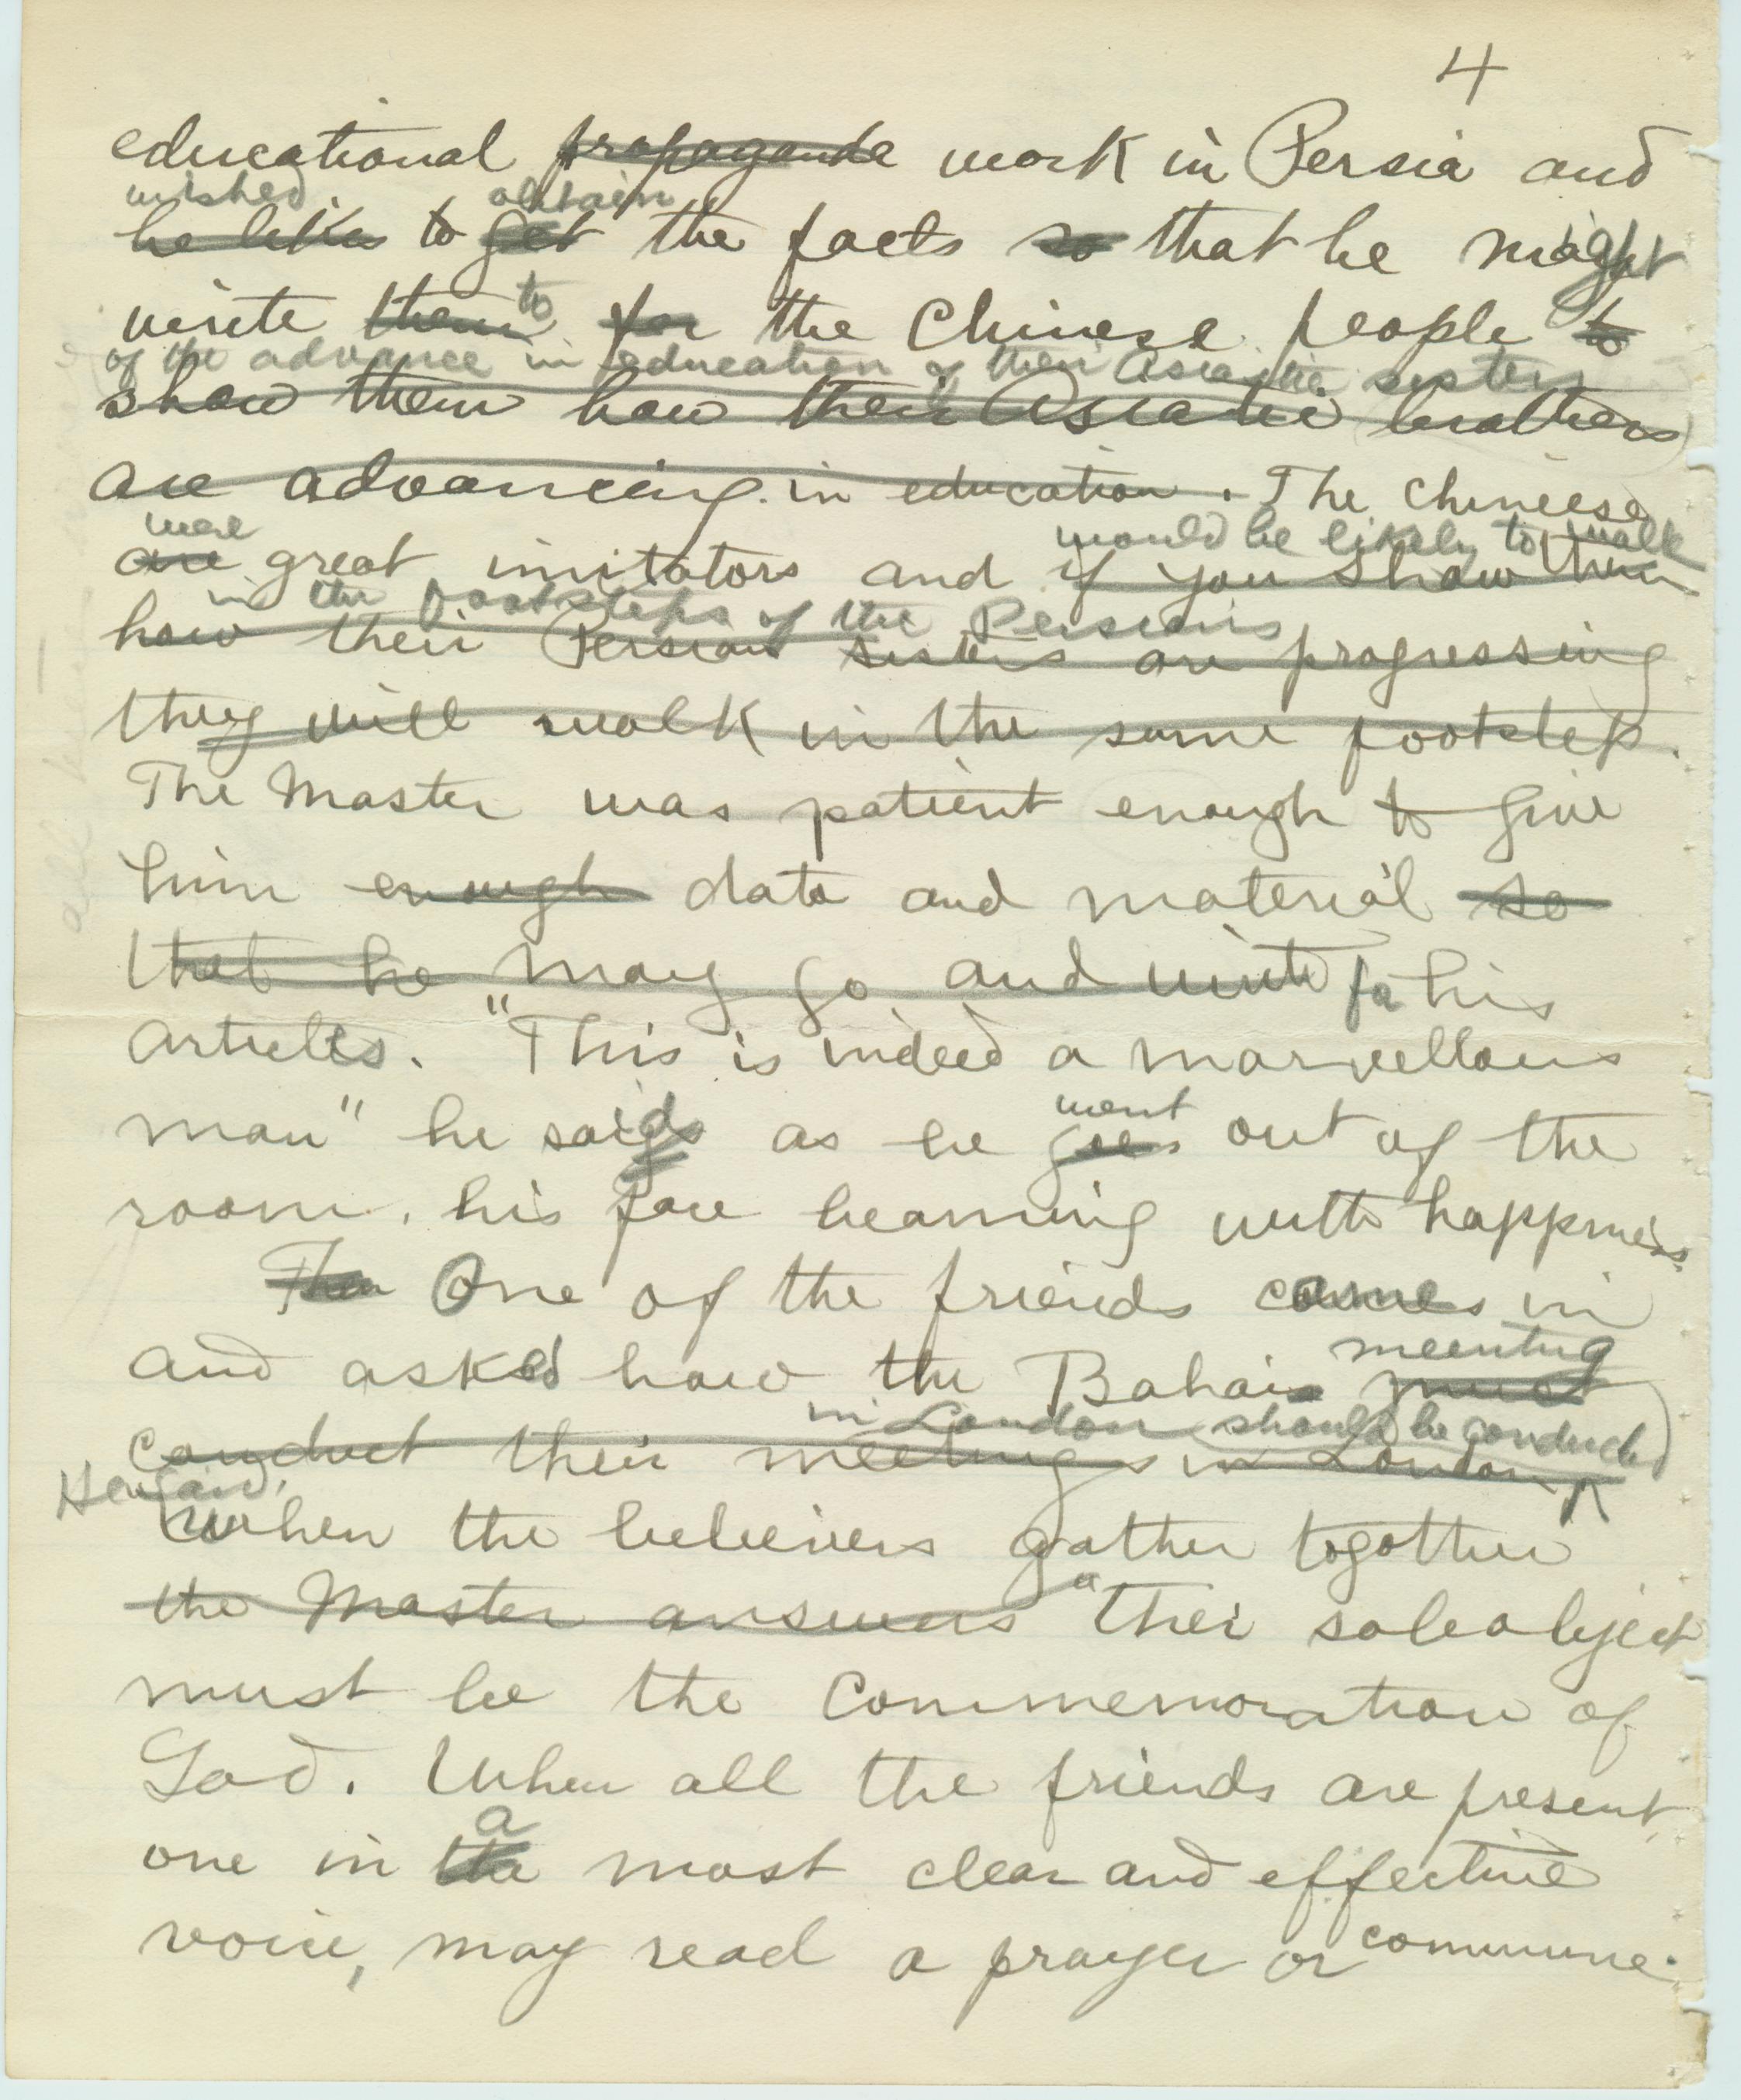 4
educational propaganda work in Persia and
wished obtain
he likes to get the facts so that he might
write them to for the Chinese people to
of the advance in education of their Asiatic sisters
show them how their Asiatic brothers
are advancing in education. The Chineese
were would be likely to walk
are great imitators and if you show them
in the footsteps of the Persians
how their Persian sisters are progressing
they will walk in the same footstep.
The Master was patient enough to give
him enough data and material so
that he may go and write for his
articles. "This is indeed a marvellous
man" he said as he
went
goes out of the
room, his face beaming with happiness.
Then One of the friends came in
and asked how the Bahai
meeting
must
in London should be conducted
conduct their meetings in London
He said,
When the believers gather together
the Master answers "their sole object
must be the commemoration of
God. When all the friends are present,
a
one in the most clear and effective
voice, may read a prayer or commune.